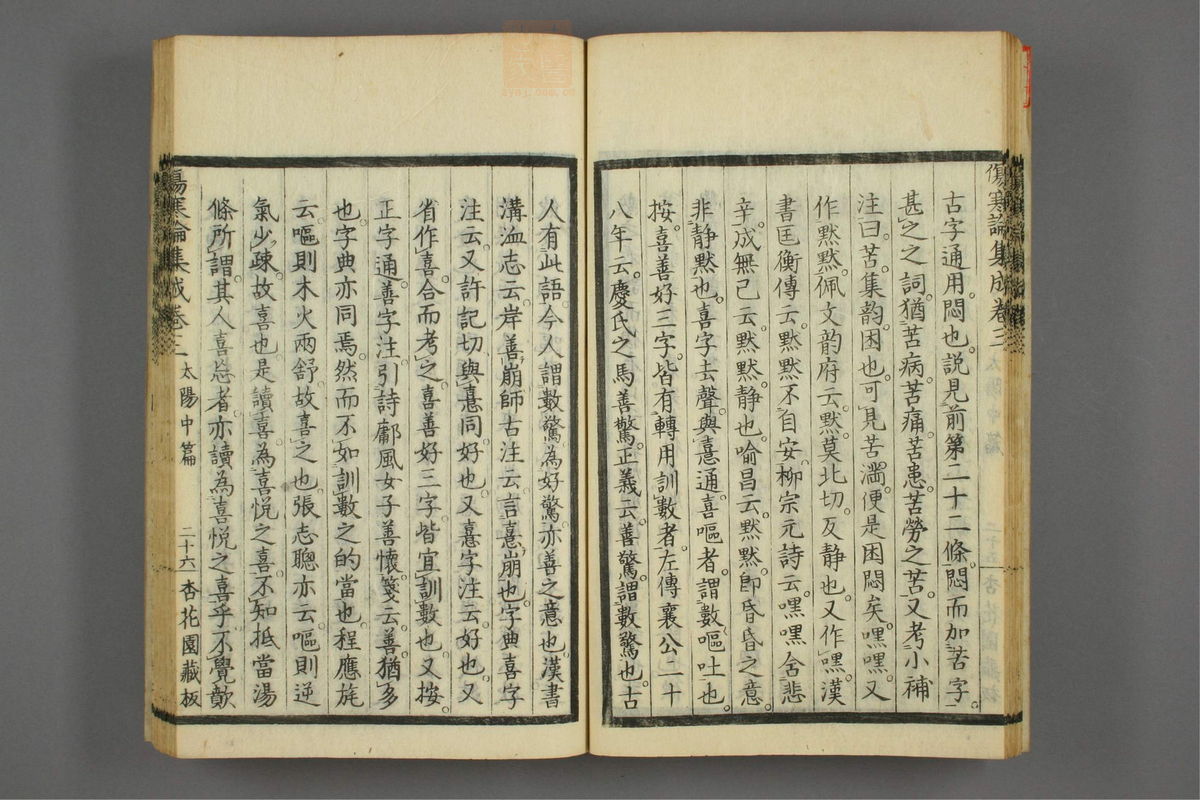 傷寒論集成卷三
古字通用。悶也。說見前第二十二條。悶而加苦字。
甚之之詞。猶苦病。苦痛。苦患。苦勞之苦。又考小補
注曰。苦。集韵。困也。可見苦滿。便是困悶矣。嘿嘿。又
作黙黙。佩文韵府云。黙。莫北切。反静也。又作嘿。漢
書匡衡傳云。黙黙不自安。柳宗元詩云。嘿嘿舍悲
辛。成無己云。黙黙。静也。喻昌云。黙黙。即昏昏之意。
非静黙也。喜字去聲。與憙通。喜嘔者。謂數嘔吐也。
按。喜善好三字。皆有轉用訓數者。左傳襄公二十
八年云。慶氏之馬善驚。正義云。善驚。謂數驚也。古
人有此語。今人謂數驚。為好驚。亦善之意也。漢書
溝洫志云。岸善崩。師古注云。言憙崩也。字典喜字
注云。又許記切。與憙同。好也。又憙字注云。好也。又
省作喜。合而考之。喜善好三字。皆宜訓數也。又按。
正字通善字注。引詩鄘風女子善懷。箋云。善。猶多
也。字典亦同焉。然而不如訓數之的當也。程應旄
云。嘔則木火兩舒。故喜之也。張志聰亦云。嘔則逆
氣少疎。故喜也。是讀喜。為喜悅之喜。不知抵當湯
條所謂。其人喜忘者。亦讀為喜悅之喜乎。不覺歎
傷寒論集成卷三 太陽中篇 二十六 杏花園藏板